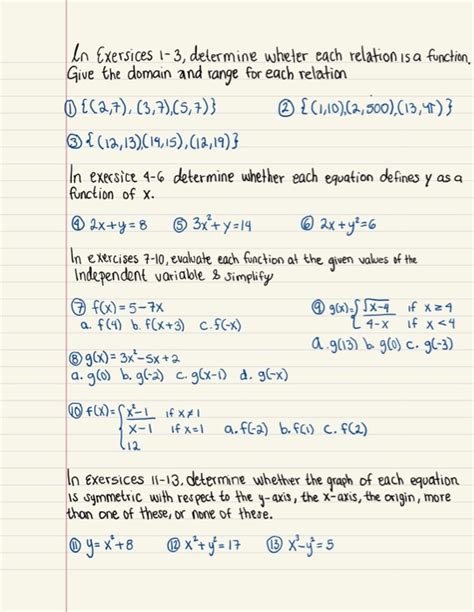 In Exersices 1-3, determine wheter each relation is a function.
Give the domain and range for each relation
① {(2,7), (3,7),(5,7)} ② {(1,10),(2,500),(13,4π)}
③ {(12,13)(14,15),(12,19)}
In exercsice 4-6 determine whether each equation defines y as a
function of x.
④ 2x+y=8 ⑤ 3x²+y=14 ⑥ 2x+y²=6
In exercises 7-10, evaluate each function at the given values of the
Independent variable & simplify
⑦ f(x)=5-7x ⑨ g(x)={√x-4 if x≥4
a. f(4) b. f(x+3) c. f(-x) 4-x if x<4
a. g(13) b. g(0) c. g(-3)
⑧ g(x)=3x²-5x+2
a. g(0) b. g(-2) c. g(x-1) d. g(-x)
⑩ f(x)={x²-1 if x≠1
x-1 if x=1 a. f(-2) b. f(1) c. f(2)
12
In Exersices 11-13, determine whether the graph of each equation
is symmetric with respect to the y-axis, the x-axis, the origin, more
than one of these, or none of these.
⑪ y=x²+8 ⑫ x²+y²=17 ⑬ x³-y²=5